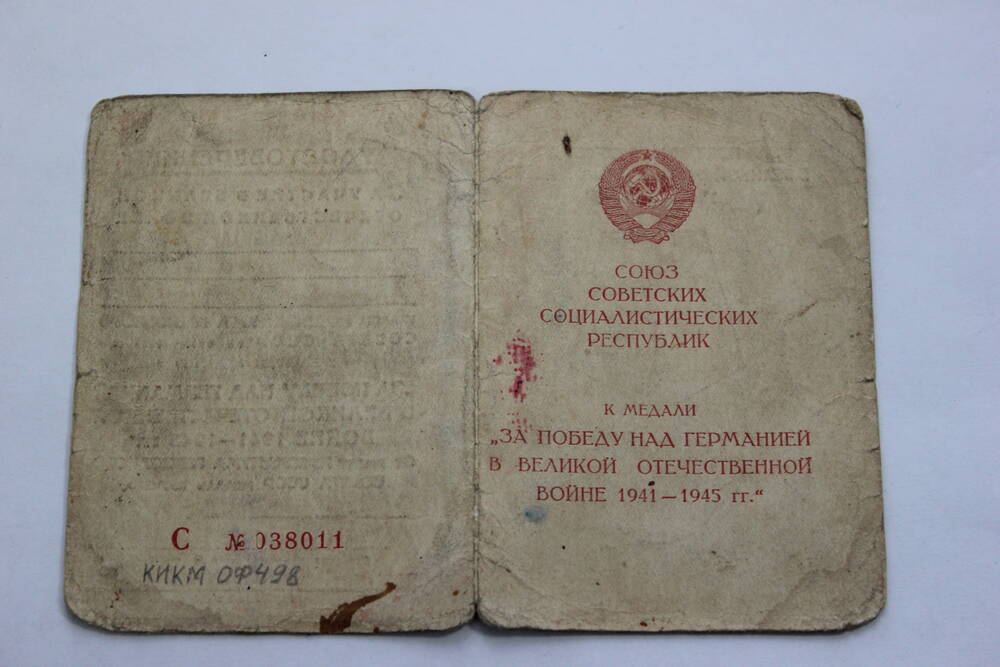 С № 038011
КИКМ ОФ498
СОЮЗ
СОВЕТСКИХ
СОЦИАЛИСТИЧЕСКИХ
РЕСПУБЛИК
К МЕДАЛИ
„ЗА ПОБЕДУ НАД ГЕРМАНИЕЙ
В ВЕЛИКОЙ ОТЕЧЕСТВЕННОЙ
ВОЙНЕ 1941—1945 гг.“